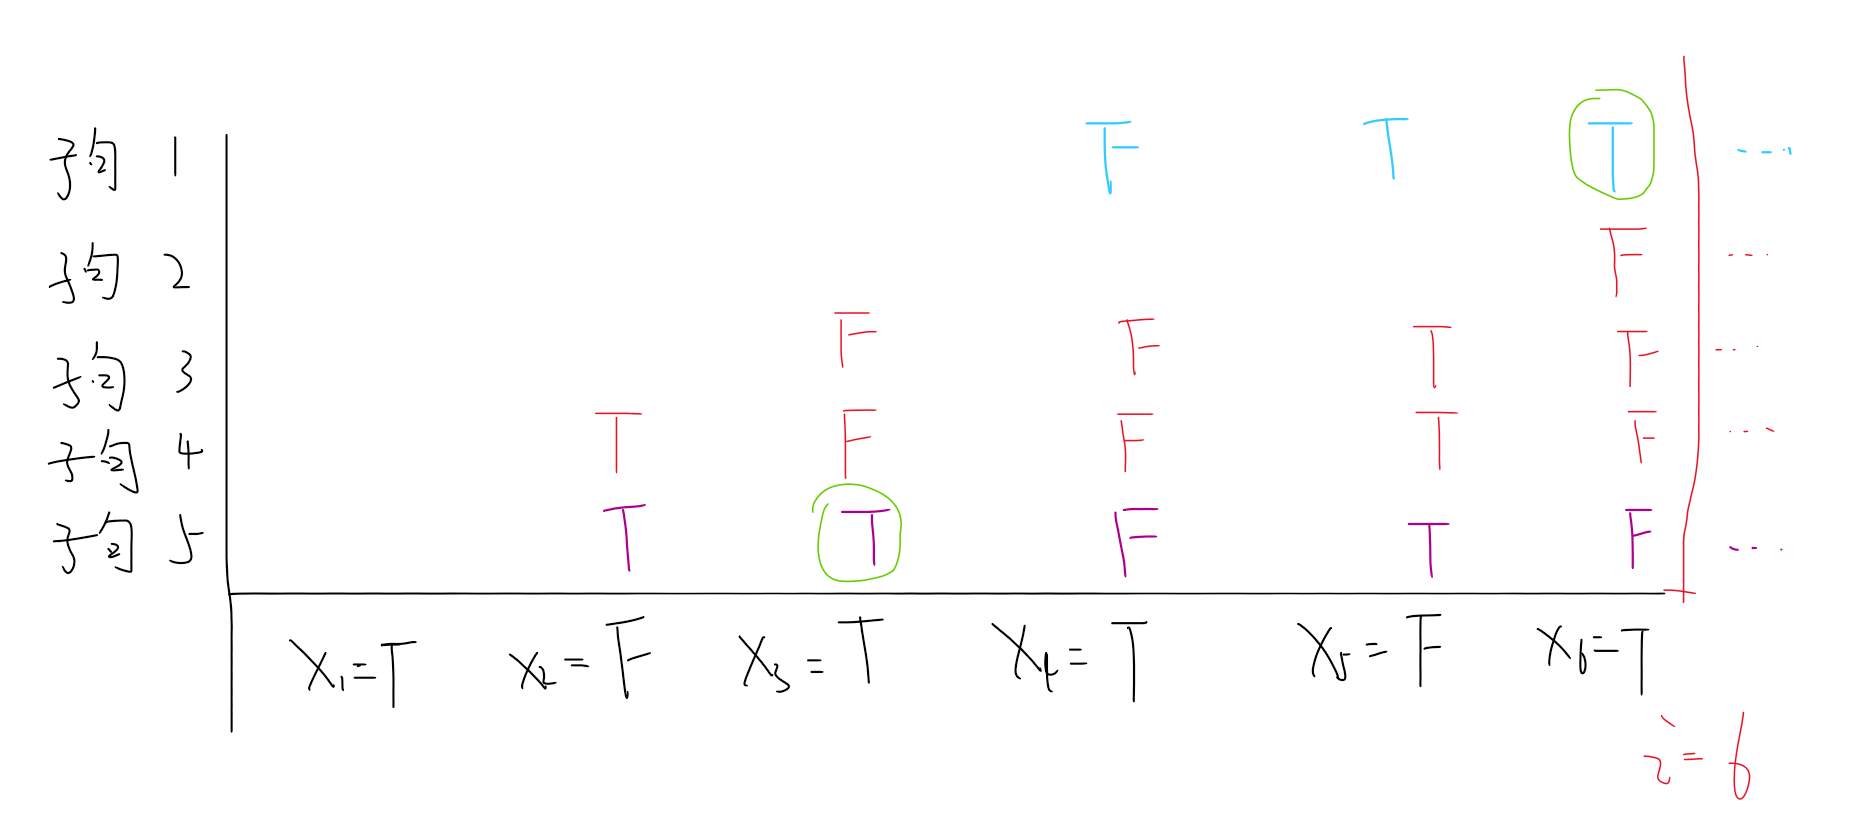 子句 1 F T T ....
子句 2 F ...
子句 3 F F T F ...
子句 4 T F F T F ...
子句 5 T T F T F ...
X₁=T X₂=F X₃=T X₄=T X₅=F X₆=T
i=6